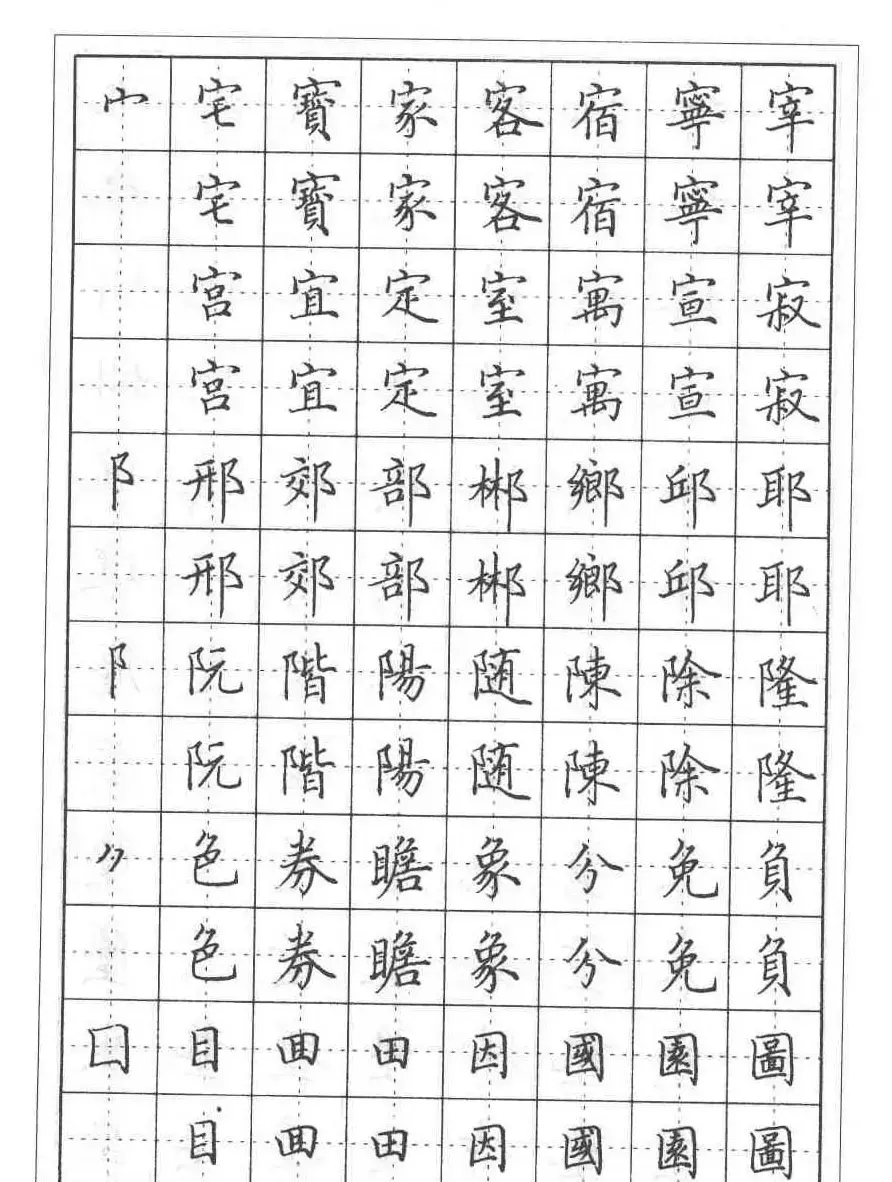 宀宅寶家客宿寧宰
宅寶家客宿寧宰
宮宜定室寓宣寂
宮宜定室寓宣寂
阝邢郊部郴鄉邱耶
邢郊部郴鄉邱耶
阝阮階陽随陳除隆
阮階陽随陳除隆
⺈色券瞻象分免負
色券瞻象分免負
囗目囬田因國園圖
目囬田因國園圖